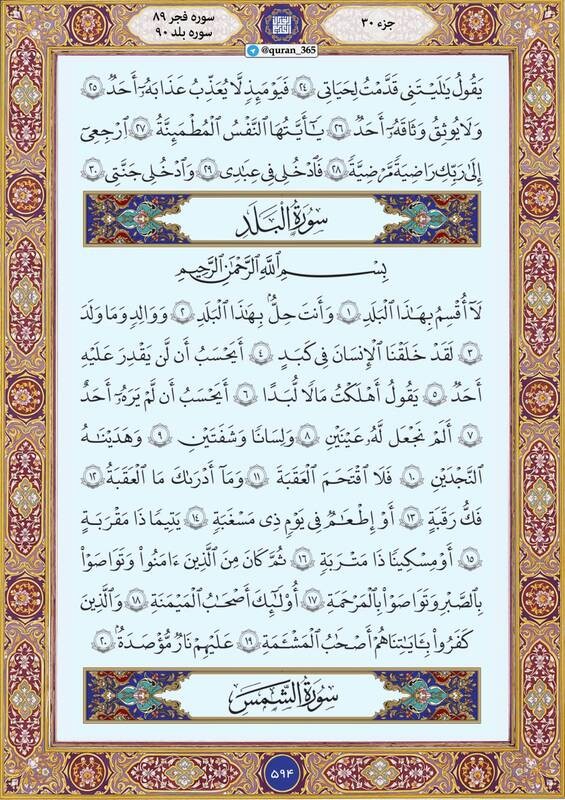 جزء ۳۰
سوره فجر ۸۹
سوره بلد ۹۰
@quran_365
يَقُولُ يَٰلَيْتَنِى قَدَّمْتُ لِحَيَاتِى ٢٤ فَيَوْمَئِذٍ لَّا يُعَذِّبُ عَذَابَهُۥٓ أَحَدٌ ٢٥
وَلَا يُوثِقُ وَثَاقَهُۥٓ أَحَدٌ ٢٦ يَٰٓأَيَّتُهَا ٱلنَّفْسُ ٱلْمُطْمَئِنَّةُ ٢٧ ٱرْجِعِىٓ
إِلَىٰ رَبِّكِ رَاضِيَةً مَّرْضِيَّةً ٢٨ فَٱدْخُلِى فِى عِبَٰدِى ٢٩ وَٱدْخُلِى جَنَّتِى ٣٠
سُورَةُ الْبَلَدِ
بِسْمِ ٱللَّهِ ٱلرَّحْمَٰنِ ٱلرَّحِيمِ
لَآ أُقْسِمُ بِهَٰذَا ٱلْبَلَدِ ١ وَأَنتَ حِلٌّۢ بِهَٰذَا ٱلْبَلَدِ ٢ وَوَالِدٍ وَمَا وَلَدَ
٣ لَقَدْ خَلَقْنَا ٱلْإِنسَٰنَ فِى كَبَدٍ ٤ أَيَحْسَبُ أَن لَّن يَقْدِرَ عَلَيْهِ
أَحَدٌ ٥ يَقُولُ أَهْلَكْتُ مَالًا لُّبَدًا ٦ أَيَحْسَبُ أَن لَّمْ يَرَهُۥٓ أَحَدٌ
٧ أَلَمْ نَجْعَل لَّهُۥ عَيْنَيْنِ ٨ وَلِسَانًا وَشَفَتَيْنِ ٩ وَهَدَيْنَٰهُ
ٱلنَّجْدَيْنِ ١٠ فَلَا ٱقْتَحَمَ ٱلْعَقَبَةَ ١١ وَمَآ أَدْرَىٰكَ مَا ٱلْعَقَبَةُ ١٢
فَكُّ رَقَبَةٍ ١٣ أَوْ إِطْعَٰمٌ فِى يَوْمٍ ذِى مَسْغَبَةٍ ١٤ يَتِيمًا ذَا مَقْرَبَةٍ
١٥ أَوْ مِسْكِينًا ذَا مَتْرَبَةٍ ١٦ ثُمَّ كَانَ مِنَ ٱلَّذِينَ ءَامَنُوا۟ وَتَوَاصَوْا۟
بِٱلصَّبْرِ وَتَوَاصَوْا۟ بِٱلْمَرْحَمَةِ ١٧ أُو۟لَٰٓئِكَ أَصْحَٰبُ ٱلْمَيْمَنَةِ ١٨ وَٱلَّذِينَ
كَفَرُوا۟ بِـَٔايَٰتِنَا هُمْ أَصْحَٰبُ ٱلْمَشْـَٔمَةِ ١٩ عَلَيْهِمْ نَارٌ مُّؤْصَدَةٌۢ ٢٠
سُورَةُ الشَّمْسِ
۵۹۴